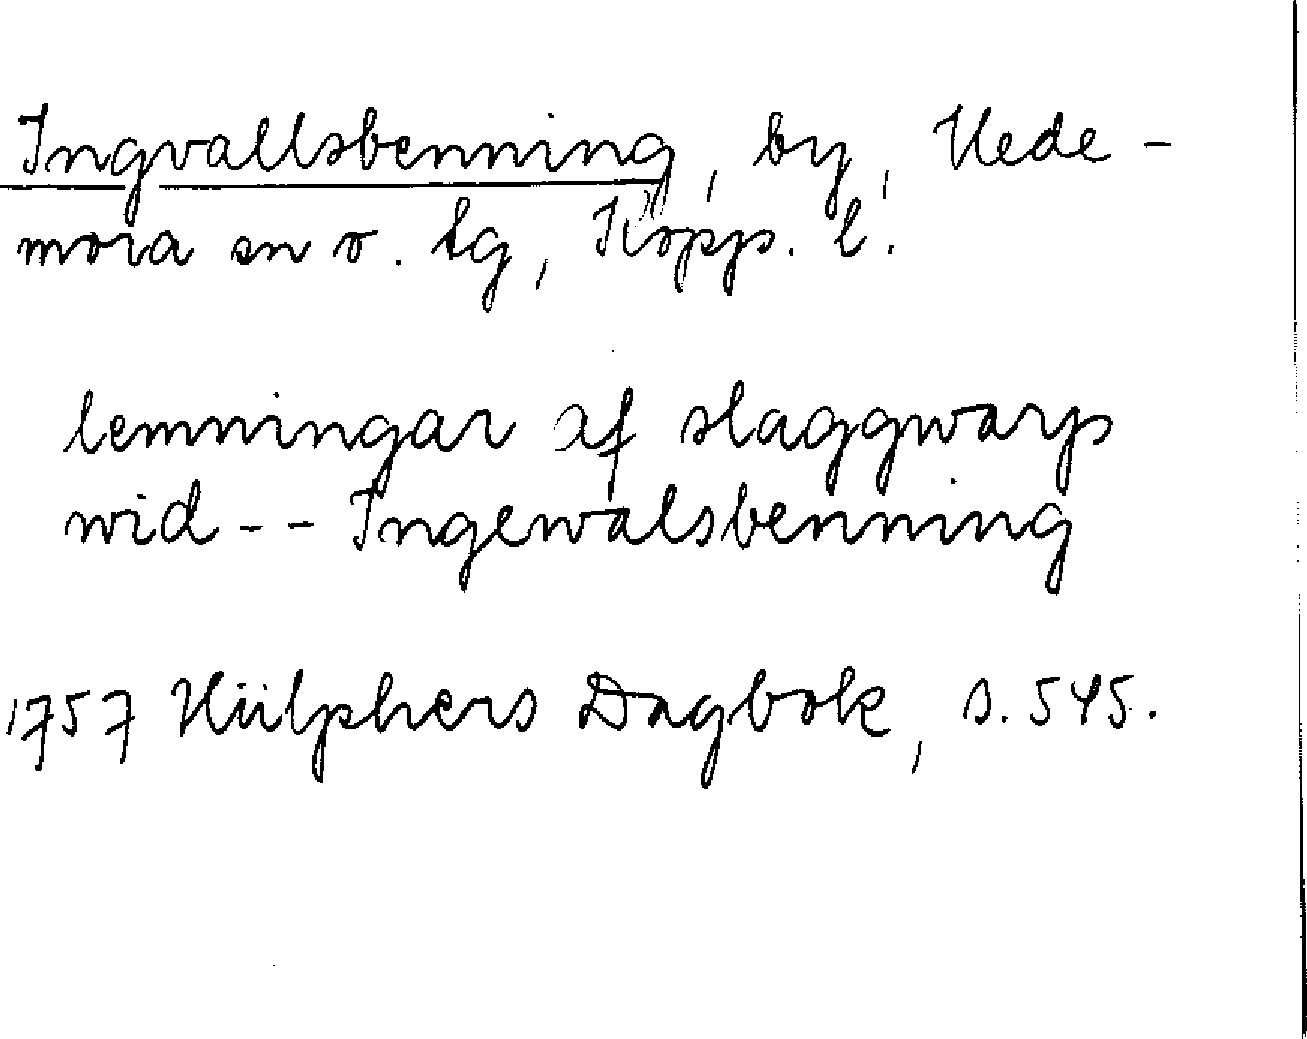 Ingvallsbenning, by, Hede-
mora sn o. tg, Kopp. l.
lemningar af slaggwarp
wid -- Ingewalsbenning
1757 Hülphers Dagbok, s. 545.